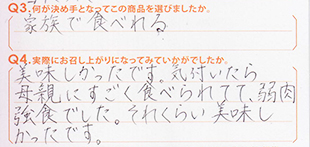 Q3.何が決め手となってこの商品を選びましたか。
家族で食べれる
Q4.実際にお召し上がりになってみていかがでしたか。
美味しかったです。気付いたら
母親にすごく食べられてて、弱肉
強食でした。それくらい美味し
かったです。